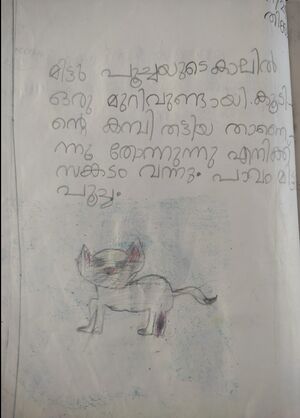 മിട്ടു പൂച്ചയുടെ കാലിൽ
ഒരു മുറിവുണ്ടായി. കൂടി
ന്റെ കമ്പി തട്ടിയ താണെ
ന്നു തോന്നുന്നു എനിക്ക്
സങ്കടം വന്നു. പാവം മി
പൂച്ച.